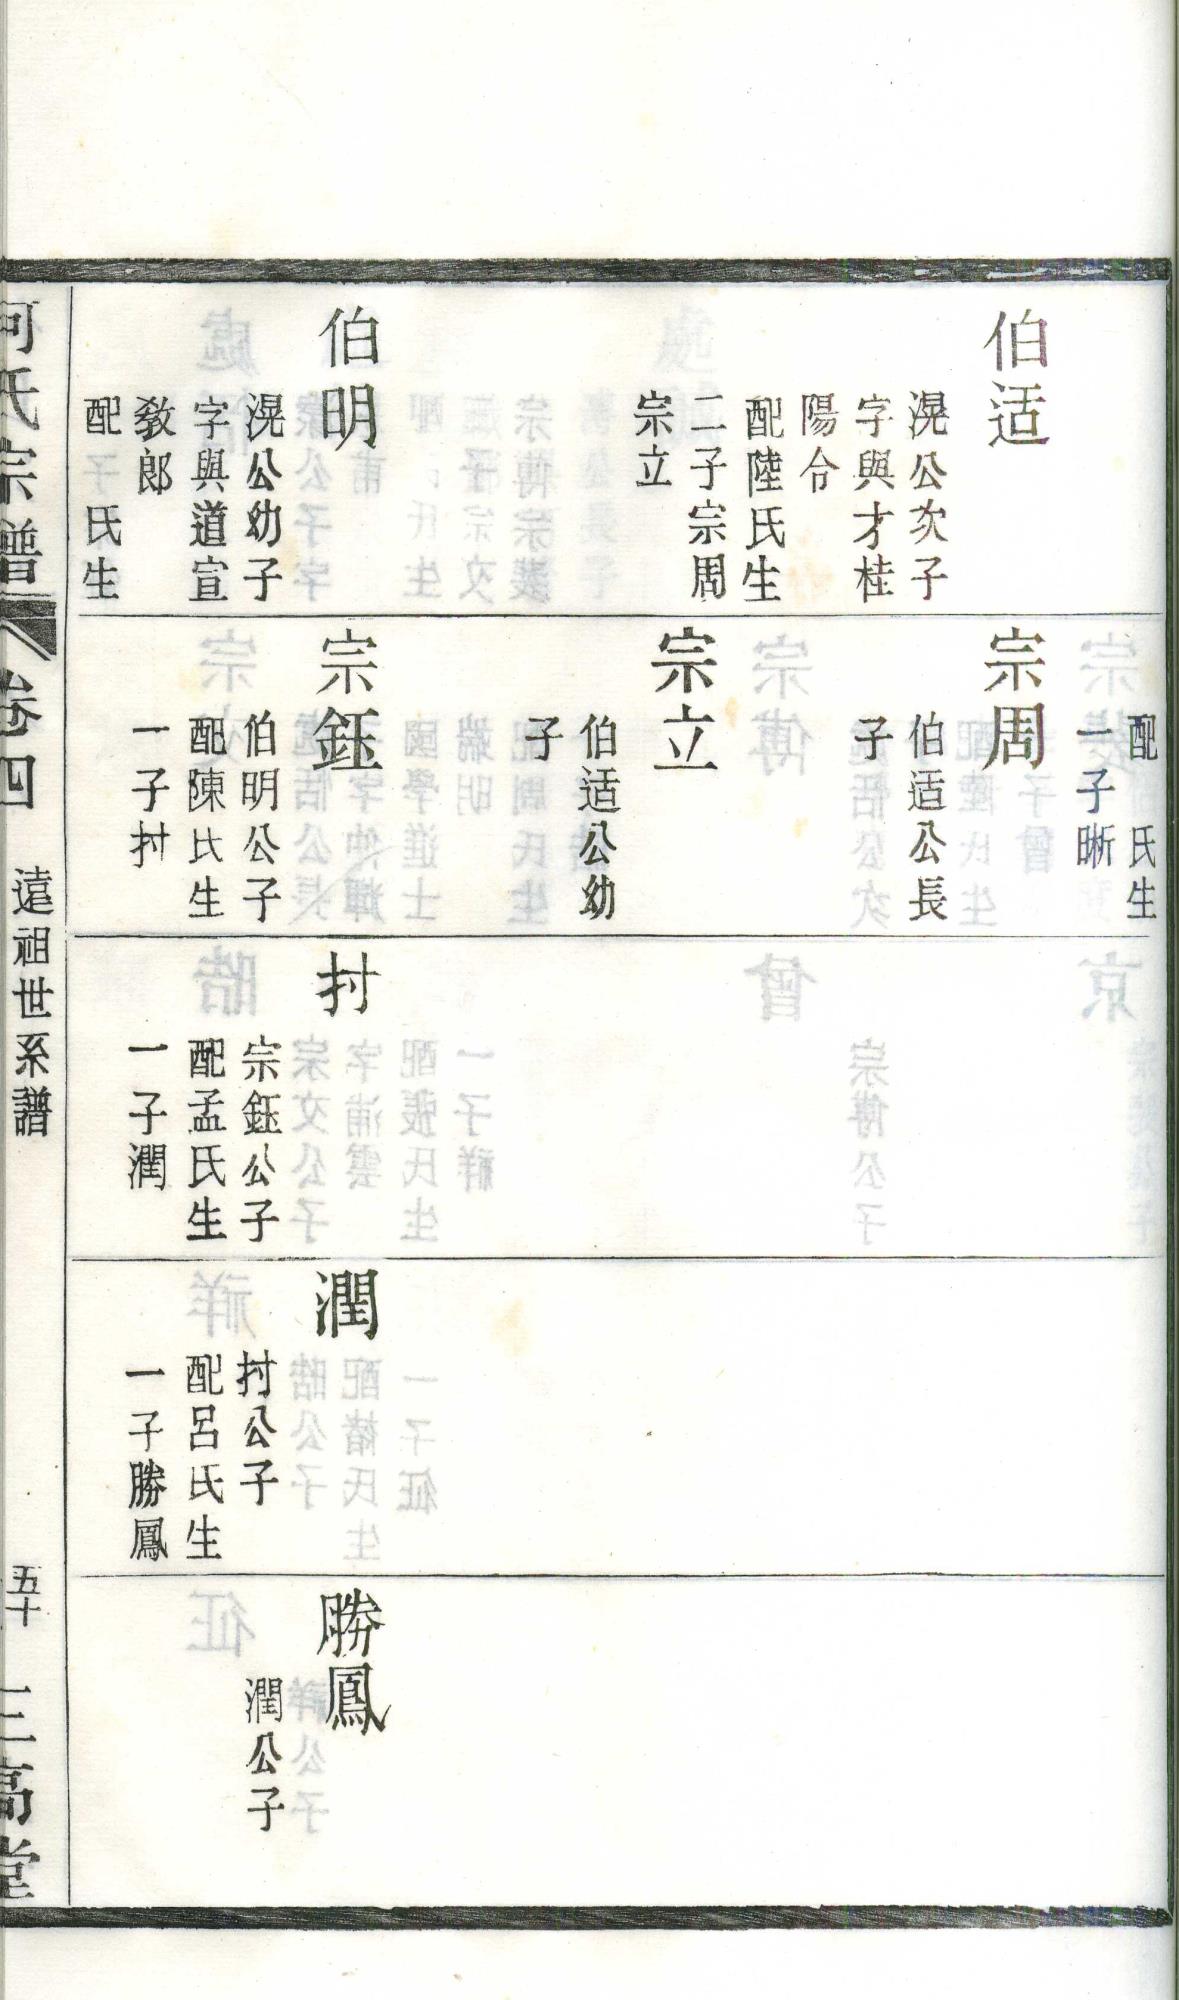 伯适
滉公次子
字與才桂
陽令
配陸氏生
二子宗周
宗立
伯明
滉公幼子
字與道宣
教郎
配　氏生
配　氏生
一子晰
宗周
伯适公長
子
宗立
伯适公幼
子
宗鈺
伯明公子
配陳氏生
一子村
村
宗鈺公子
配孟氏生
一子潤
潤
村公子
配呂氏生
一子勝鳳
勝鳳
潤公子
何氏宗譜
卷四
遠祖世系譜
五十
三高堂